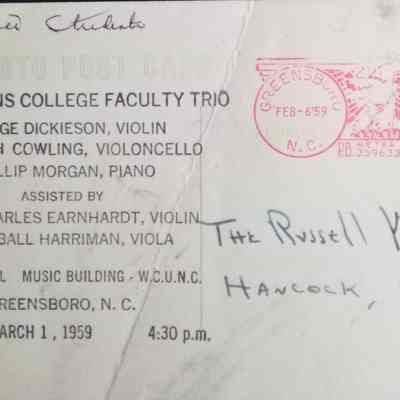 Students
PHOTO POST CARD
NS COLLEGE FACULTY TRIO
GE DICKIESON, VIOLIN
H COWLING, VIOLONCELLO
LLIP MORGAN, PIANO
ASSISTED BY
HARLES EARNHARDT, VIOLIN
BALL HARRIMAN, VIOLA
L MUSIC BUILDING - W.C.U.N.C.
GREENSBORO, N. C.
MARCH 1, 1959 4:30 p.m.
GREENSBORO
FEB-6'59
N.C.
P.B. METER
THE RUSSELL
HANCOCK,